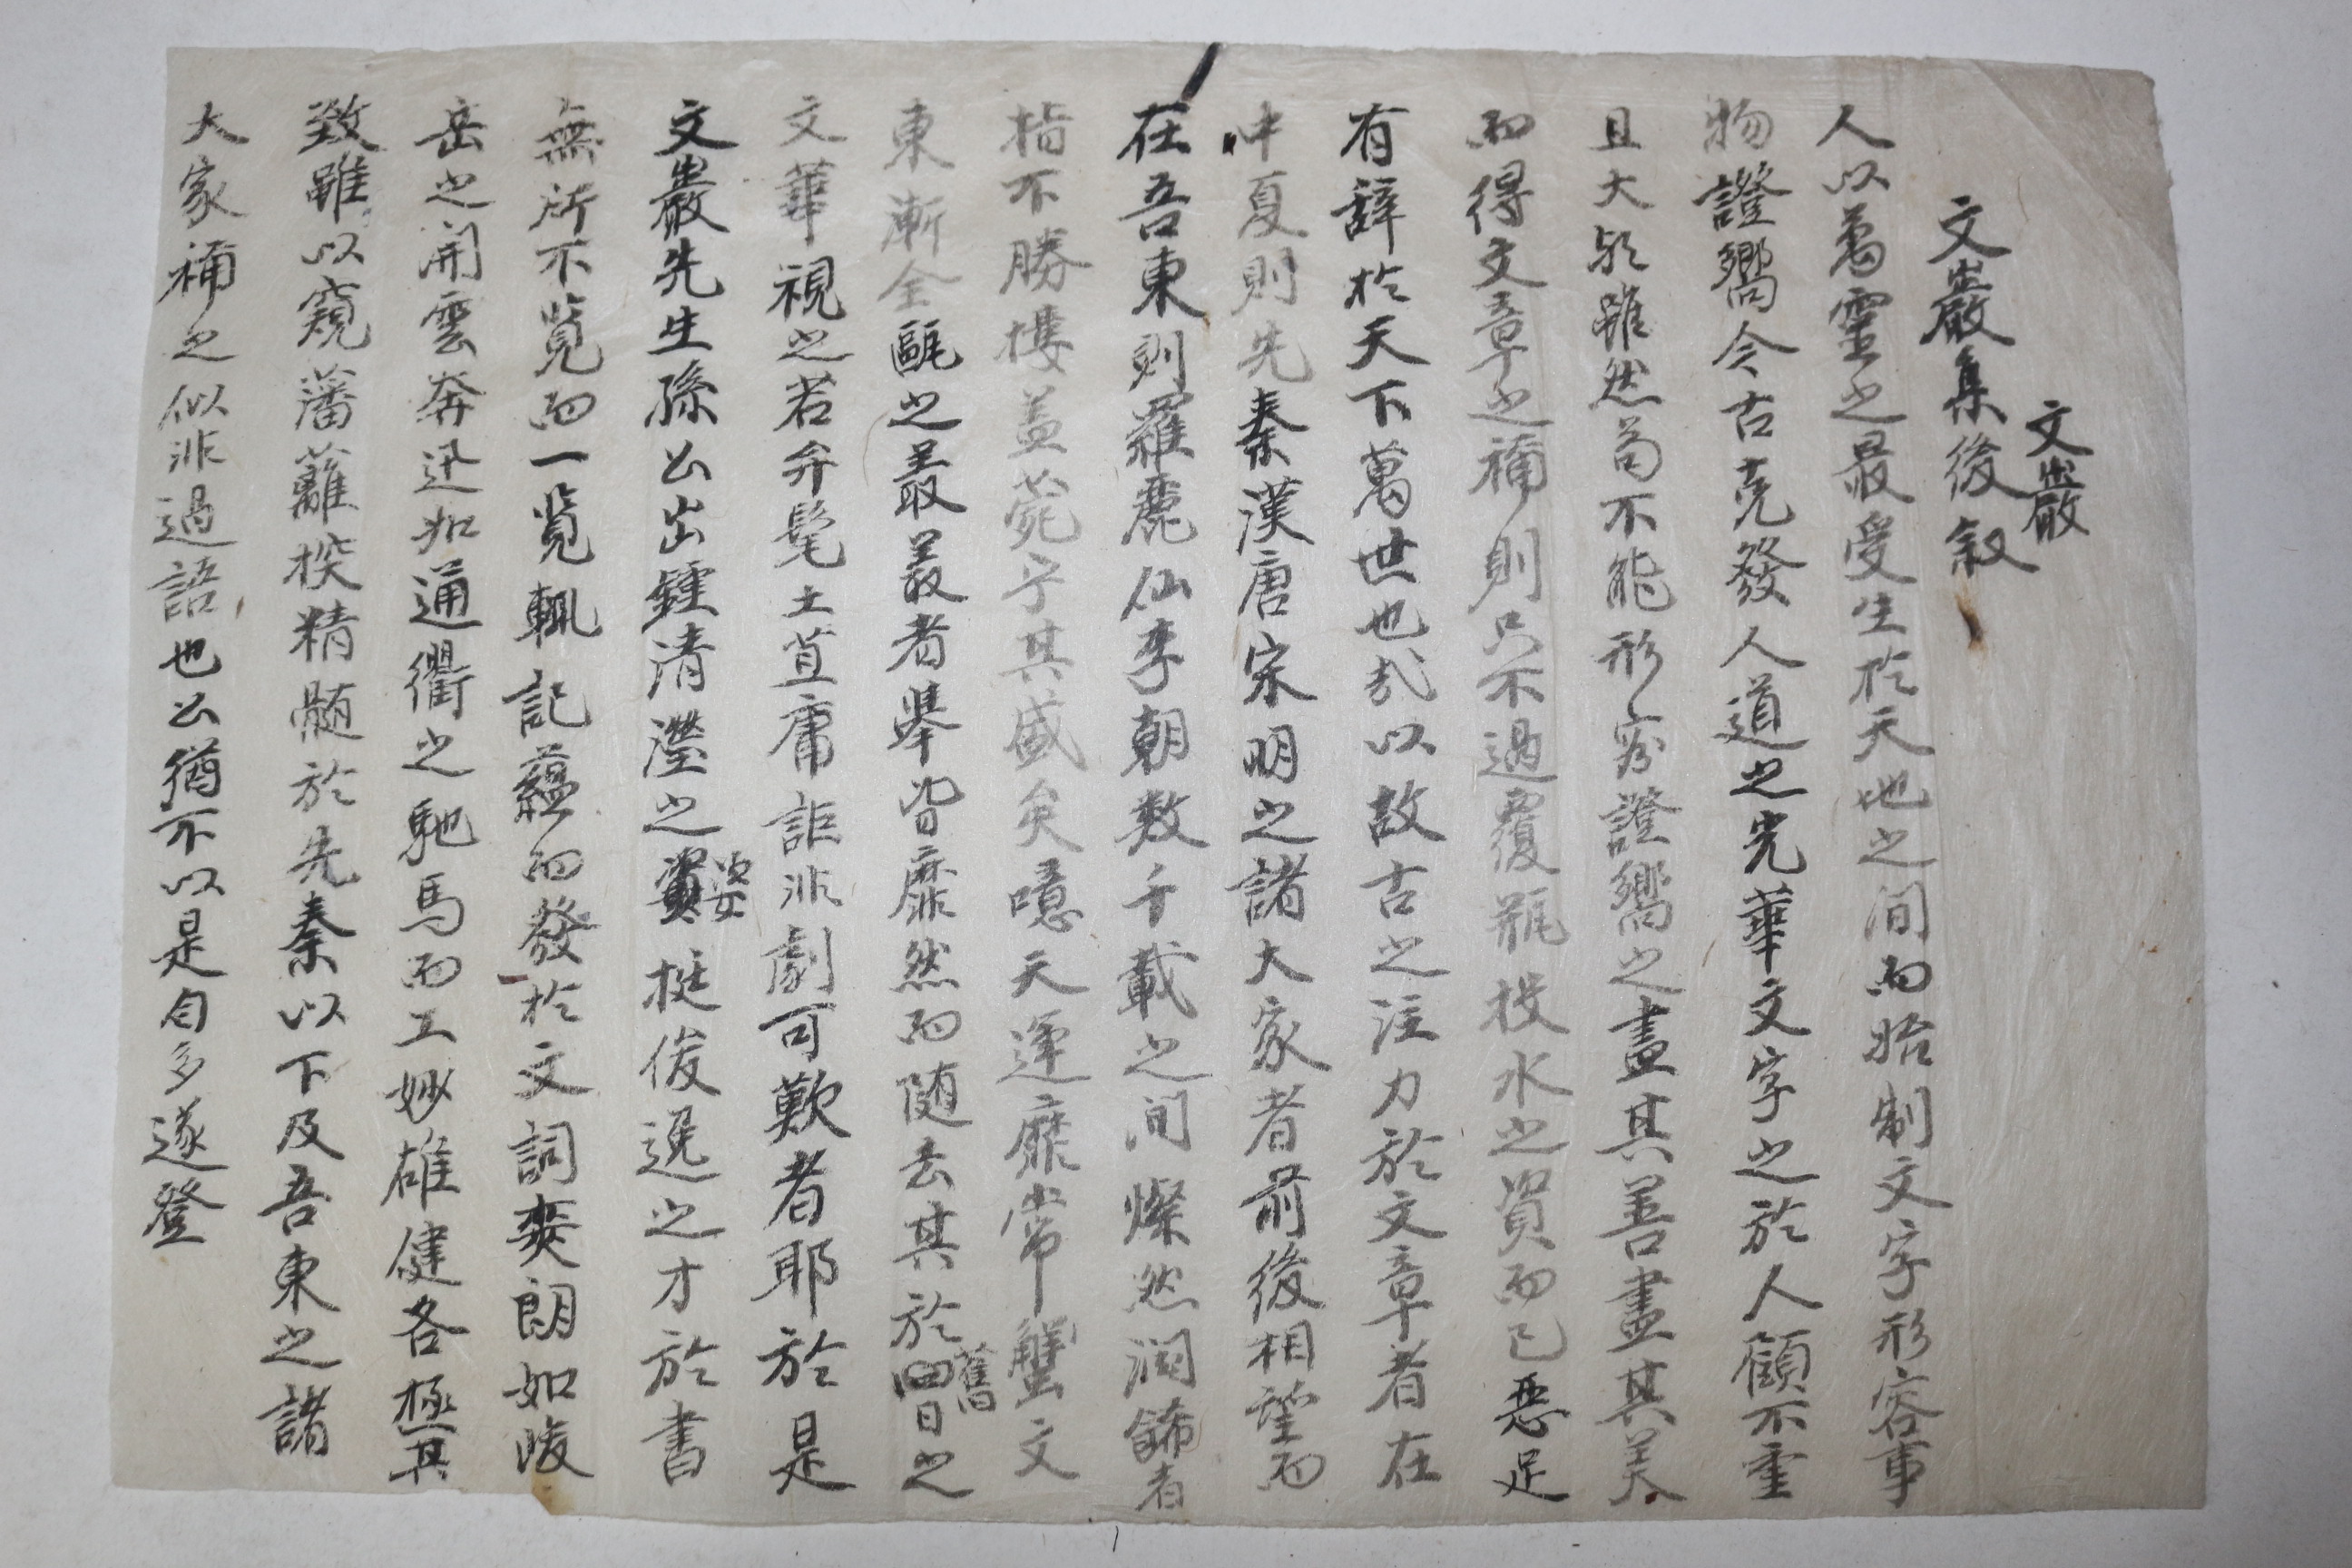 文巖
文巖集後叙
人以萬靈之最受生於天地之間而始制文字形容事
物證嚮今古克發人道之光華文字之於人顧不重
且大歟雖然苟不能形容證嚮之盡其善盡其美
而得文章之稱則只不過覆瓶投水之資而已惡足
有辭於天下萬世也哉以故古之注力於文章者在
中夏則先秦漢唐宋明之諸大家者前後相望而
在吾東則羅麗仙李朝数千載之间燦然润餙者
指不勝摟盖菀乎其盛矣噫天運靡常蟹文
東漸全甌之叢叢者擧皆靡然而随去其於舊日之
文華視之若弁髦土苴庸詎非劇可歎者耶於是
文巖先生孫公出鍾清瀅之姿挺俊逸之才於書
無所不覽而一覽輒記蘊而發於文詞爽朗如峻
岳之開雲奔迅如通衢之馳馬而工妙雄健各極其
致雖以窺藩蘺探精髄於先秦以下及吾東之諸
大家稱之似非過語也公猶不以是自多遂登